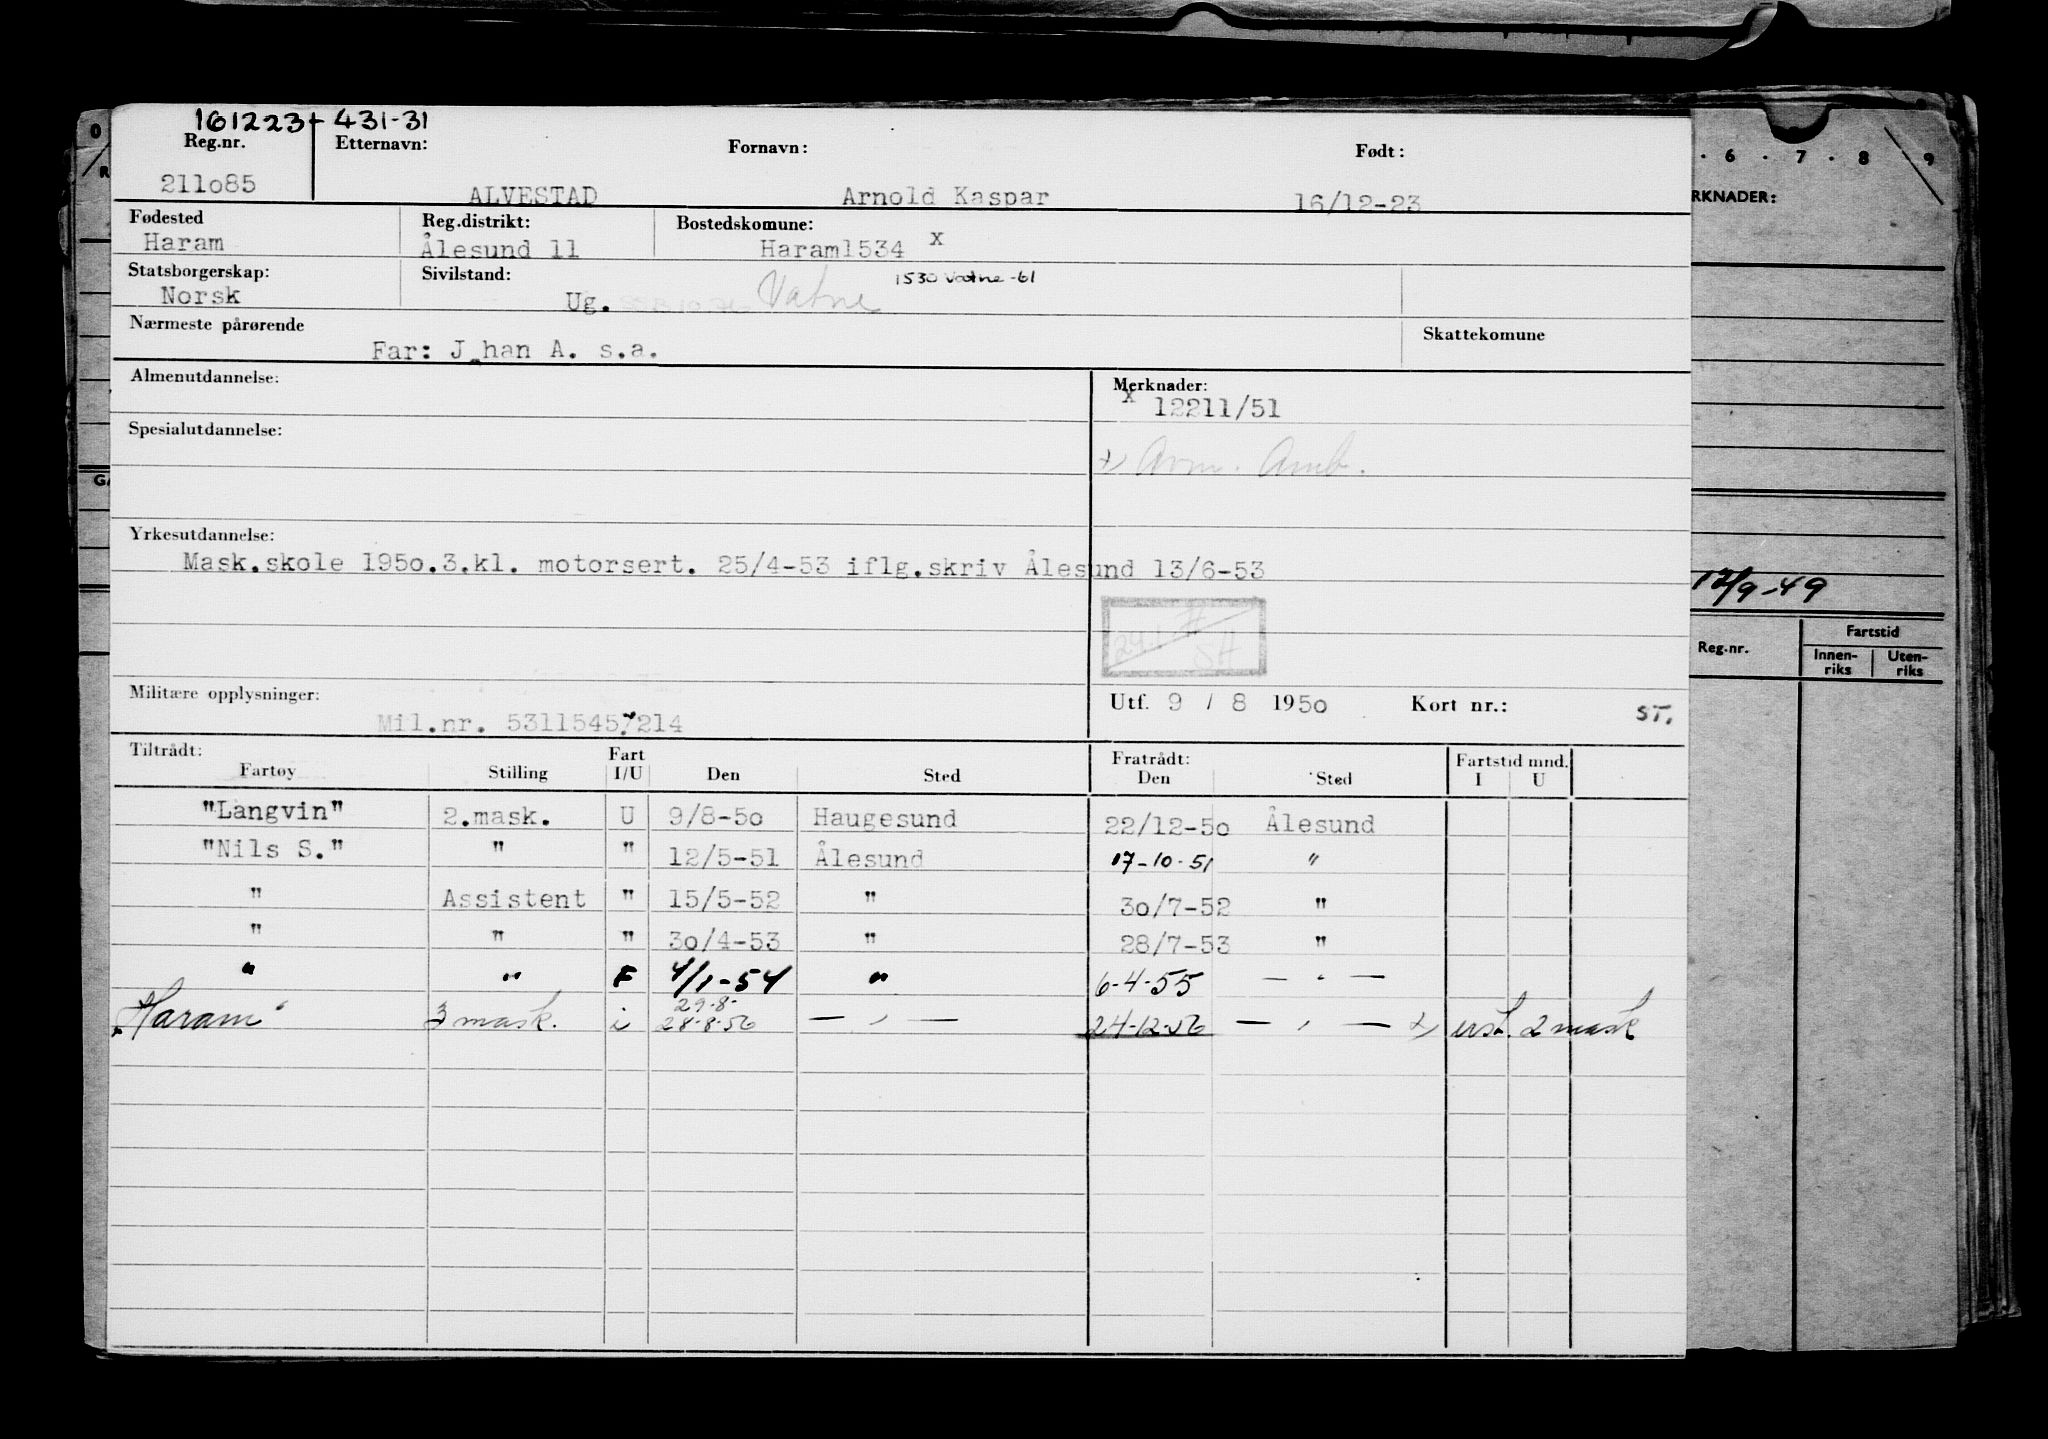 161223 431-31
Reg.nr. Etternavn: Fornavn: Født:
211o85 ALVESTAD Arnold Kaspar 16/12-23
Fødested Reg.distrikt: Bostedskomune:
Haram Ålesund 11 Haram1534 x
Statsborgerskap: Sivilstand: 1530 Vatne -61
Norsk Ug. Vatne
Nærmeste pårørende Skattekomune
Far: J han A. s.a.
Almenutdannelse: Merknader:
x 12211/51
Spesialutdannelse:
Yrkesutdannelse:
Mask.skole 195o.3.kl. motorsert. 25/4-53 iflg.skriv Ålesund 13/6-53
Militære opplysninger: Utf. 9 / 8 195o Kort nr.: ST.
Mil.nr. 5311545 214
Tiltrådt: Fart Fratrådt: Fartstid mnd.
Fartøy Stilling I/U Den Sted Den Sted I U
"Langvin" 2.mask. U 9/8-5o Haugesund 22/12-5o Ålesund
"Nils S." " " 12/5-51 Ålesund 17-10-51 "
" Assistent " 15/5-52 " 3o/7-52 "
" " " 3o/4-53 " 28/7-53 "
" " F 4/1-54 " 6-4-55 — " —
29-8-
"Haram" 3 mask. i 28-8-56 — " — 24-12-56 — " — x 2 mask
0 6 . 7 . 8 . 9
R RKNADER:
GA
17/9-49
Reg.nr. Fartstid
Innen-riks Uten-riks